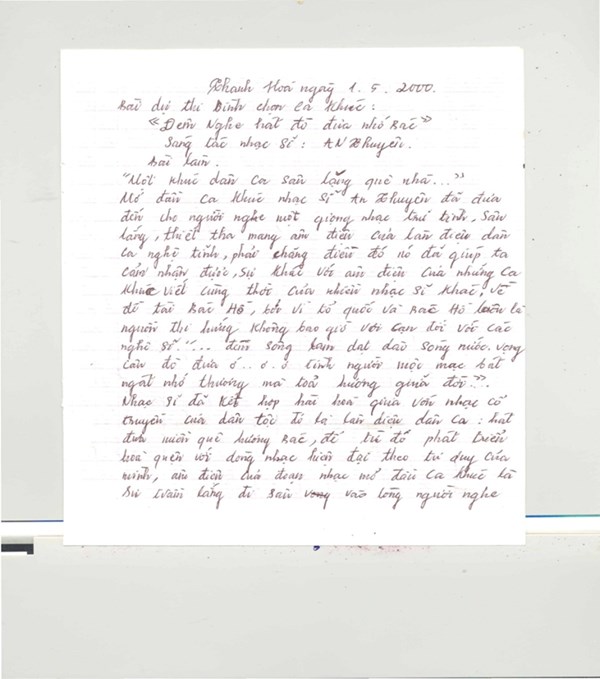 Thanh Hoá ngày 1.5.2000.
Bài dự thi Bình chọn ca khúc:
"Đêm Nghe hát đò đưa nhớ Bác"
Sáng tác nhạc sĩ: AN Thuyên.
Bài làm.
"Một khúc dân ca sâu lắng quê nhà..."
Mở đầu ca khúc nhạc sĩ An Thuyên đã đưa
đến cho người nghe một giọng nhạc trữ tình, sâu
lắng, thiết tha mang âm điệu của làn điệu dân
ca nghệ tĩnh, phải chăng điều đó nó đã giúp ta
cảm nhận được, sự khác với âm điệu của những ca
khúc viết cùng thời của nhiều nhạc sĩ khác, về
đề tài Bác Hồ, bởi vì tổ quốc và Bác Hồ luôn là
nguồn thi hứng không bao giờ vơi cạn đối với các
nghệ sĩ. "... đêm sông Lam dạt dào sóng nước. vọng
câu đò đưa ơ..ơ.ơ tình người mộc mạc bát
ngát nhớ thương mà toả hương giữa đời".
Nhạc sĩ đã kết hợp hài hoà giữa vốn nhạc cổ
truyền của dân tộc đó là làn điệu dân ca: hát
đưa miền quê hương Bác, để từ đó phát triển
hoà quện với dòng nhạc hiện đại theo tư duy của
mình, âm điệu của đoạn nhạc mở đầu ca khúc là
sự trầm lắng đi sâu vào lòng người nghe